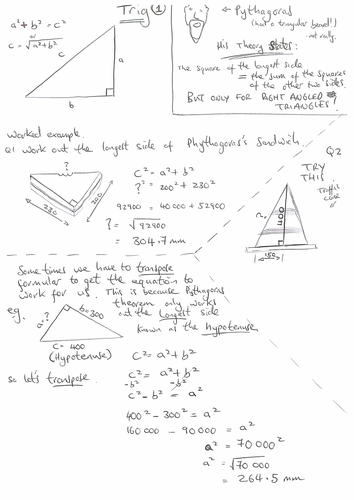 Trig 1
a² + b² = c²
or
c = √a² + b²
c
a
b
← Pythagoras
(had a triangular beard!)
not really.
His Theory States:
The square of the largest side
= the sum of the squares
of the other two sides.
BUT ONLY FOR RIGHT ANGLED
TRIANGLES!
Worked example.
Q1 Work out the longest side of Phythagoras's Sandwich.
?
230
200
c² = a² + b²
?² = 200² + 230²
92900 = 40000 + 52900
? = √92900
= 304.7mm
Q2
TRY
THIS
Traffic
cone
?
400
150
Some times we have to transpose
formular to get the equation to
work for us. This is because Pythagoras
theorem only works
out the longest side
known as the hypotenuse
eg.
a=?
b=300
c = 400
(Hypotenuse)
so let's transpose.
c² = a² + b²
c² = a² + b²
-b² -b²
c² - b² = a²
400² - 300² = a²
160000 - 90000 = a²
a² = 70000²
a² = √70000
= 264.5 mm